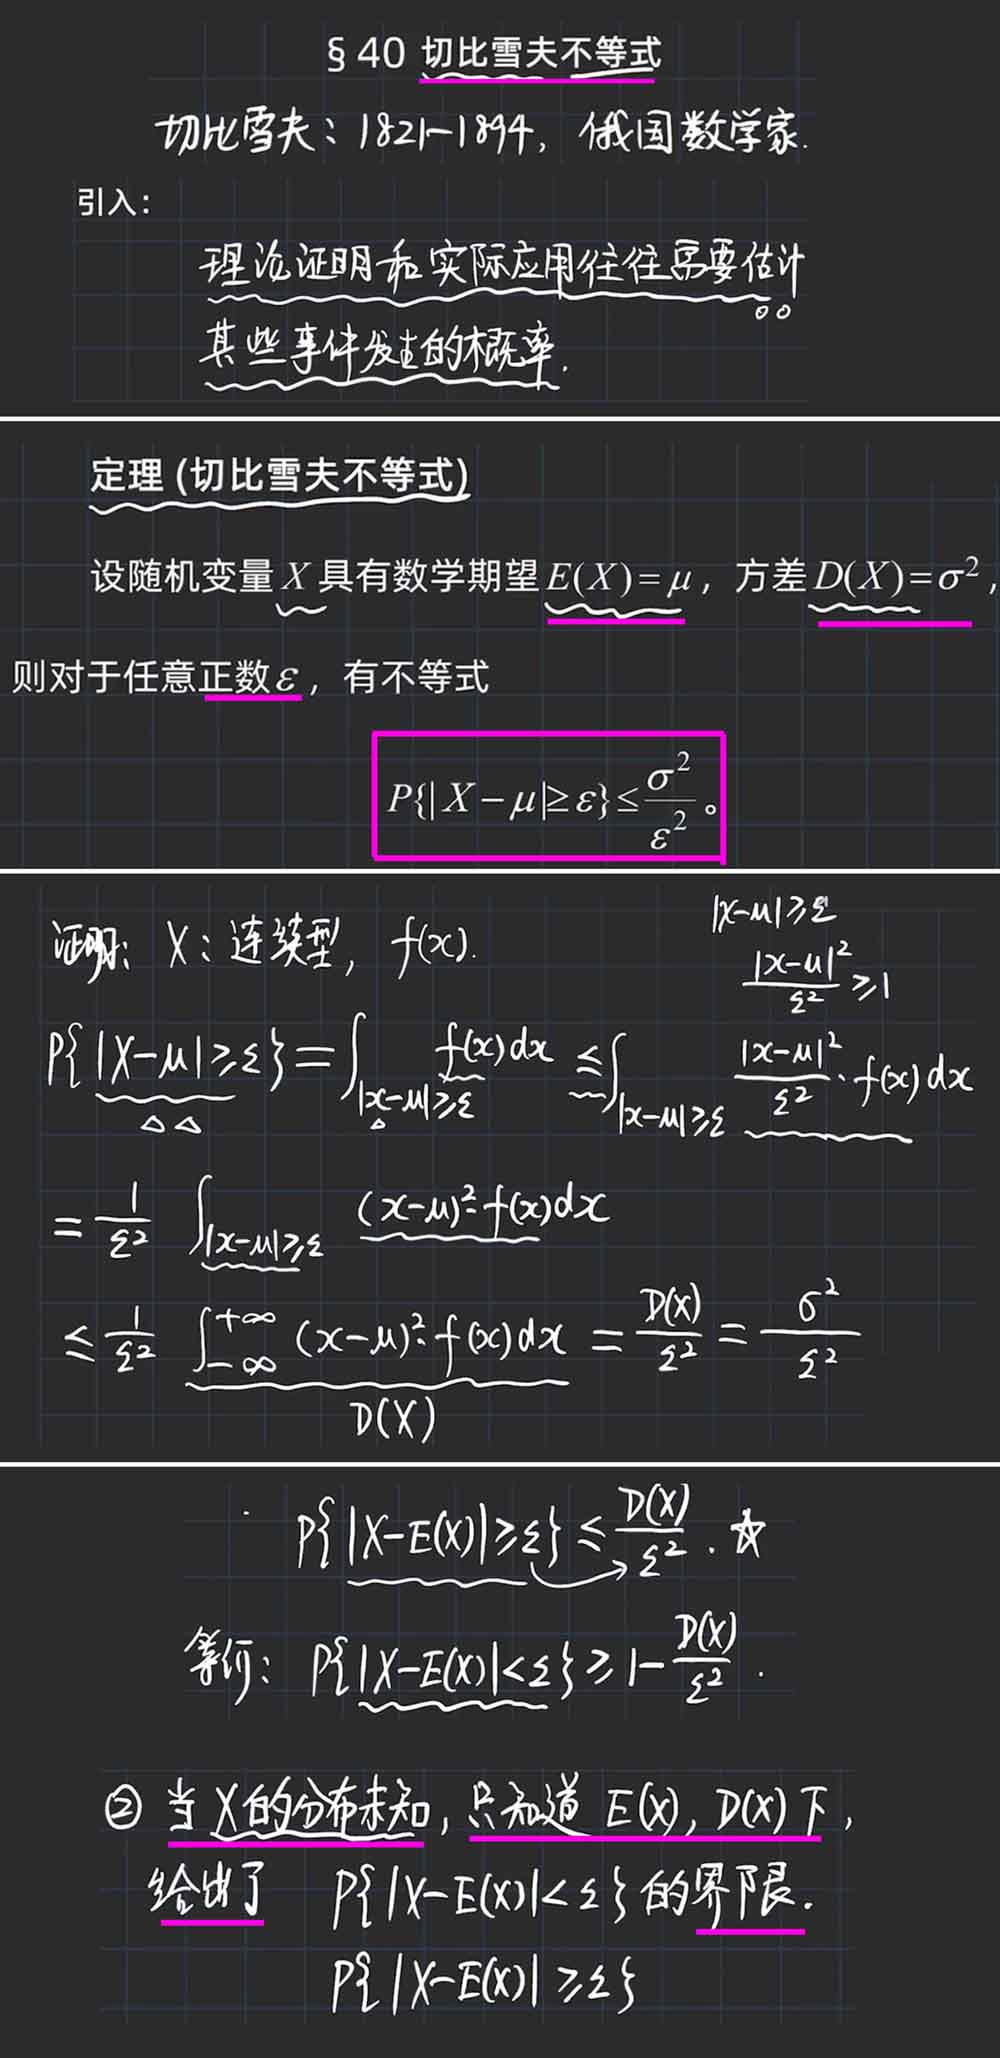 § 40 切比雪夫不等式
切比雪夫：1821-1894, 俄国数学家.
引入：
理论证明和实际应用往往需要估计
某些事件发生的概率.
定理 (切比雪夫不等式)
设随机变量 X 具有数学期望 E(X) = μ，方差 D(X) = σ²，
则对于任意正数 ε，有不等式
P{| X − μ |≥ ε} ≤ σ²/ε²。
|x-μ|≥ε
证明：X：连续型, f(x).
|x-μ|²/ε² ≥1
P{|X-μ|≥ε} = ∫_{|x-μ|≥ε} f(x)dx ≤ ∫_{|x-μ|≥ε} |x-μ|²/ε² · f(x)dx
= 1/ε² ∫_{|x-μ|≥ε} (x-μ)²·f(x)dx
≤ 1/ε² ∫_{-∞}^{+∞} (x-μ)²·f(x)dx = D(X)/ε² = σ²/ε²
D(X)
P{|X-E(X)|≥ε} ≤ D(X)/ε². ☆
等价：P{|X-E(X)|<ε} ≥ 1- D(X)/ε².
② 当X的分布未知, 只知道 E(X), D(X)下,
给出了 P{|X-E(X)|<ε}的界限.
P{|X-E(X)|≥ε}